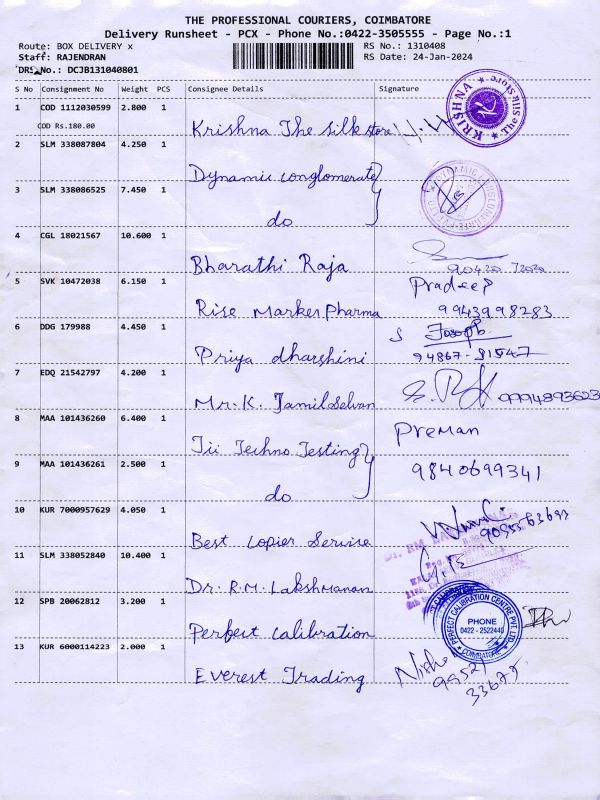 THE PROFESSIONAL COURIERS, COIMBATORE
Delivery Runsheet - PCX - Phone No.:0422-3505555 - Page No.:1
Route: BOX DELIVERY x RS No.: 1310408
Staff: RAJENDRAN RS Date: 24-Jan-2024
DRS No.: DCJB131040801
S No Consignment No Weight PCS Consignee Details Signature
1 COD 1112030599 2.800 1
COD Rs.180.00 Krishna The silk store
KRISHNA The Silk Store
2 SLM 338087804 4.250 1
Dynamic conglomerate
3 SLM 338086525 7.450 1
do
4 CGL 18021567 10.600 1
Bharathi Raja
5 SVK 10472038 6.150 1 Pradeep
Rise Marker Pharma 9943998283
6 DDG 179988 4.450 1 S Joseph
Priya dharshini 94867-81547
7 EDQ 21542797 4.200 1
Mr. K. Tamil Selvan 9994893623
8 MAA 101436260 6.400 1 Preman
Tii Techno Testing
9 MAA 101436261 2.500 1 9840699341
do
10 KUR 7000957629 4.050 1
Best Copier Service
11 SLM 338052840 10.400 1
Dr. R.M. Lakshmanan
12 SPB 20062812 3.200 1
Perfect calibration
PERFECT CALIBRATION CENTRE PVT. LTD.
PHONE
0422 - 2522440
COIMBATORE
13 KUR 6000114223 2.000 1 Nisha
Everest Trading 99521
33677